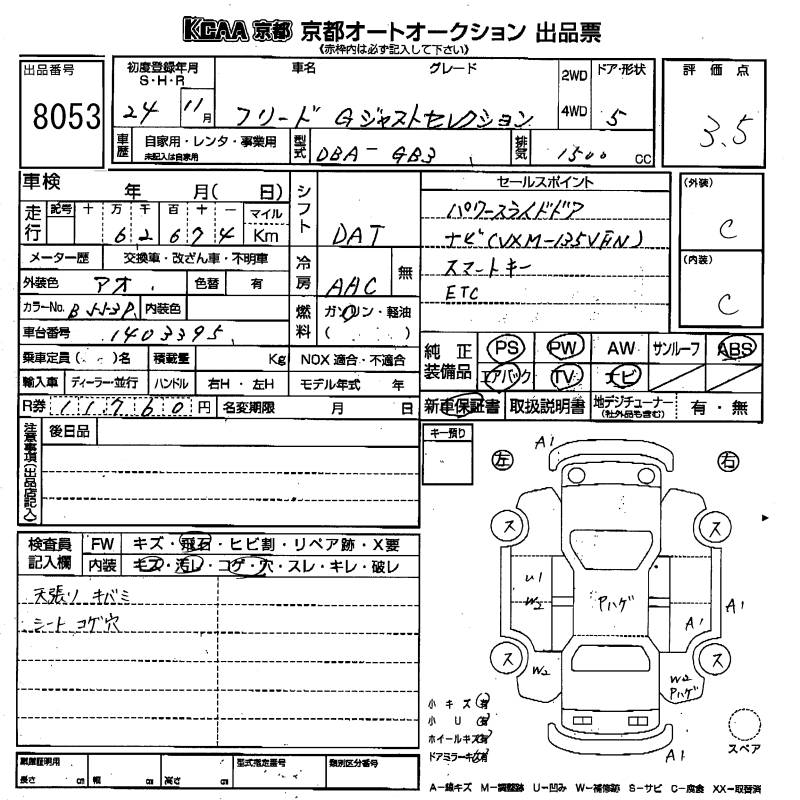 KCAA 京都 京都オートオークション 出品票
《赤枠内は必ず記入して下さい》
出品番号
8053
初度登録年月
S・H・R
24 11月
車名 グレード
フリード Gジャストセレクション
2WD
4WD
ドア・形状
5
評価点
3.5
車歴
自家用・レンタ・事業用
未記入は自家用
型式
DBA-GB3
排気
1500 cc
車検 年 月( 日)
走行
記号 十 万 千 百 十 一 マイル
6 2 6 7 4 Km
メーター歴 交換車・改ざん車・不明車
外装色 アオ 色替 有
カラーNo. B553P 内装色
車台番号 1403395
乗車定員( )名 積載量 Kg
輸入車 ディーラー・並行 ハンドル 右H・左H
R券 11760 円 名変期限 月 日
シフト
DAT
冷房
AAC 無
燃料
ガソリン・軽油
( )
NOX適合・不適合
モデル年式 年
セールスポイント
パワースライドドア
ナビ(VXM-135VFiN)
スマートキー
ETC
(外装)
C
(内装)
C
純正装備品
PS PW AW サンルーフ ABS
エアバック TV ナビ
新車保証書 取扱説明書 地デジチューナー 有・無
(社外品も含む)
注意事項(出品店記入)
後日品
キー預り
検査員記入欄
FW キズ・飛石・ヒビ割・リペア跡・X要
内装 キズ・汚レ・コゲ・穴・スレ・キレ・破レ
天張り キバミ
シート コゲ穴
左
右
A1
ス
ス
U1
W2
Pハゲ
A1
A1
ス
ス
W2
W2
Pハゲ
A1
小キズ(有)
小U(有)
ホイールキズ(有)
ドアミラーキズ(有)
スペア
車庫証明用
長さ cm 幅 cm 高さ cm
型式指定番号
類別区分番号
A-線キズ M-調整跡 U-凹み W-補修跡 S-サビ C-腐食 XX-取替済